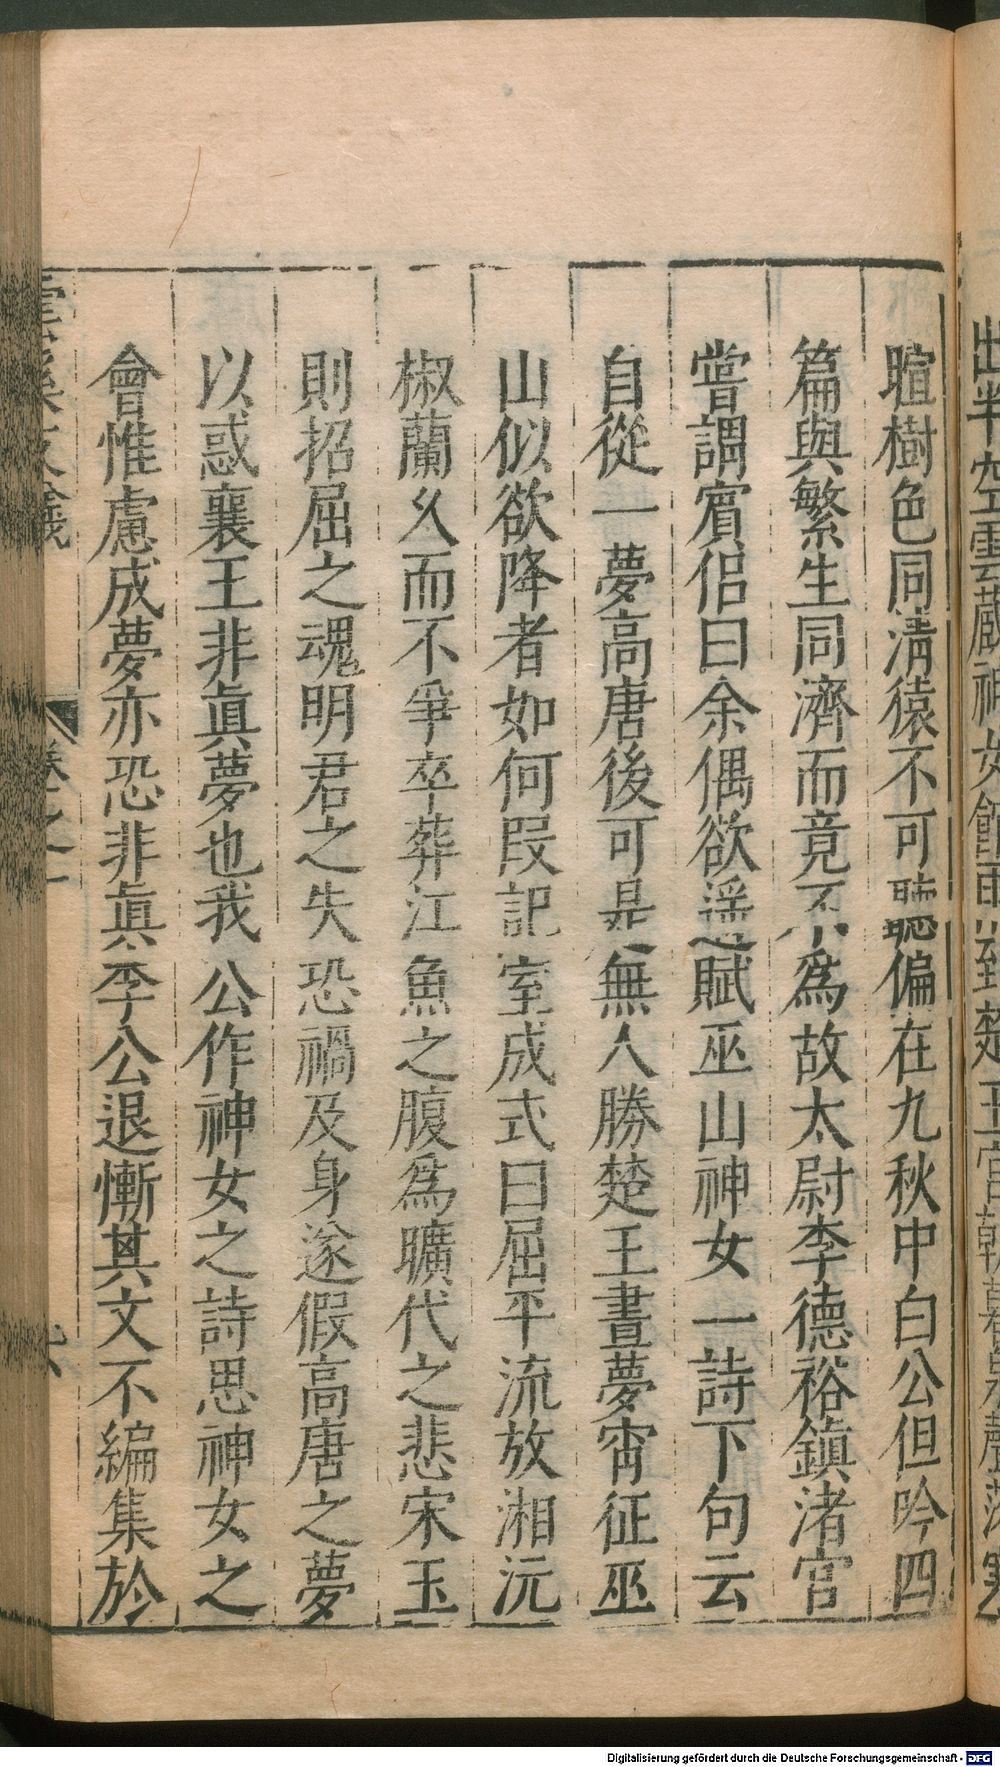 出半空雲藏神女館雨到楚王宮朝暮泉聲落寒
暄樹色同清猿不可聽偏在九秋中白公但吟四
篇與繁生同濟而竟不為故太尉李德裕鎮渚宮
嘗謂賓侣曰余偶欲遥賦巫山神女一詩下句云
自從一夢高唐後可是無人勝楚王晝夢宵征巫
山似欲降者如何段記室成式曰屈平流放湘沅
椒蘭乆而不爭卒葬江魚之腹爲曠代之悲宋玉
則招屈之魂明君之失恐禍及身遂假高唐之夢
以惑襄王非眞夢也我公作神女之詩思神女之
會惟慮成夢亦恐非眞李公退慚其文不編集於
雲溪友議
卷之一
六
Digitalisierung gefördert durch die Deutsche Forschungsgemeinschaft - DFG